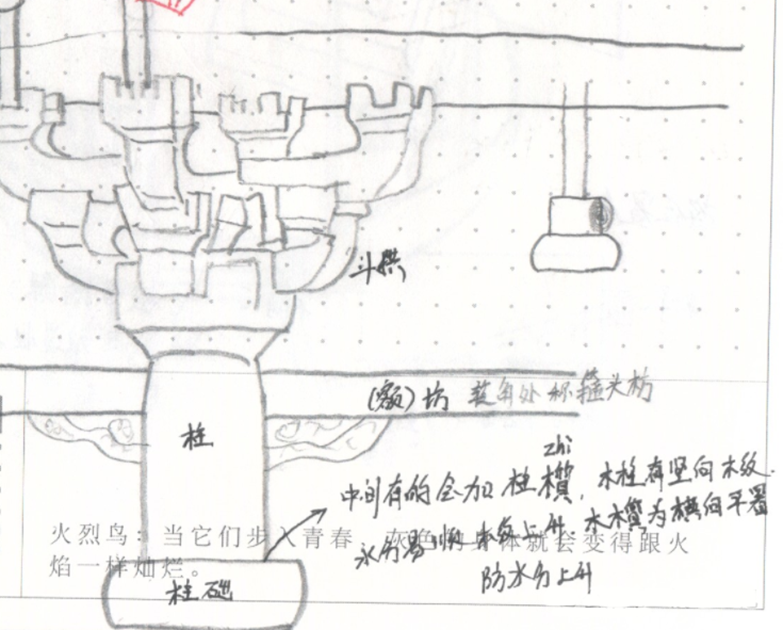 斗栱
(额)坊 转角处称箍头枋
柱
zhi
中间有的会加柱櫍,木柱有竖向木纹.
水分易顺木纹上升,木櫍为横向平置
防水分上升
火烈鸟:当它们步入青春 灰色的身体就会变得跟火
焰一样灿烂。
柱础